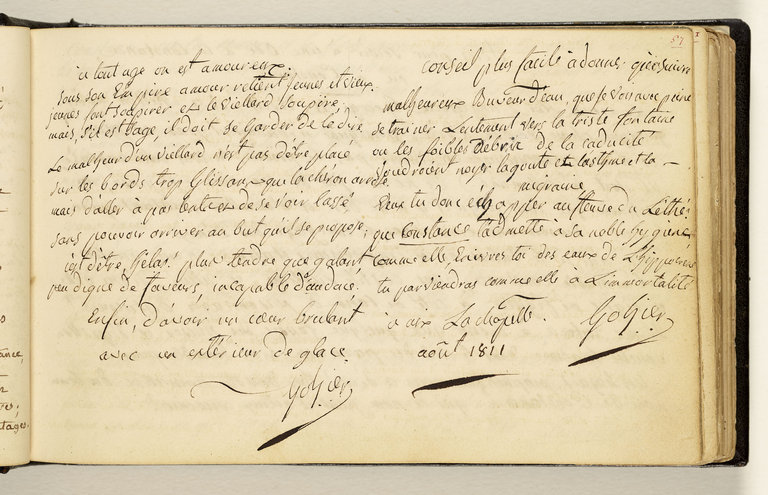 à tout age on est amoureux.
sous son Empire amour retient jeunes et vieux.
jeunes font soupirer et le vieillard soupire;
mais, s'il est sage, il doit se garder de le dire.
Le malheur d'un viellard n'est pas d'être placé
sur les bords trop glissans que lachéron arrose
mais d'aller à pas lents et de se voir lassé
sans pouvoir arriver au but qu'il se propose;
c'est d'être, hélas! plus tendre que galant
peu digne de faveurs, incapable d'audace.
Enfin, d'avoir un cœur brulant
avec un extérieur de glace.
Gohier
57
conseil plus facile à donner qu'à suivre
malheureux Buveur d'eau, que je vois avec peine
se trainer Lentement vers la triste fontaine
ou les foibles débris de la caducité
voudroient noyer la goute et lasthme et la
migraine
Veux tu donc échapper au fleuve du Léthé;
que Constance t'admette à sa noble hygiene
comme elle, Enivres toi des eaux de L'hippocrene
tu parviendras comme elle à L'immortalité
à aix La chapelle. Gohier
août 1811